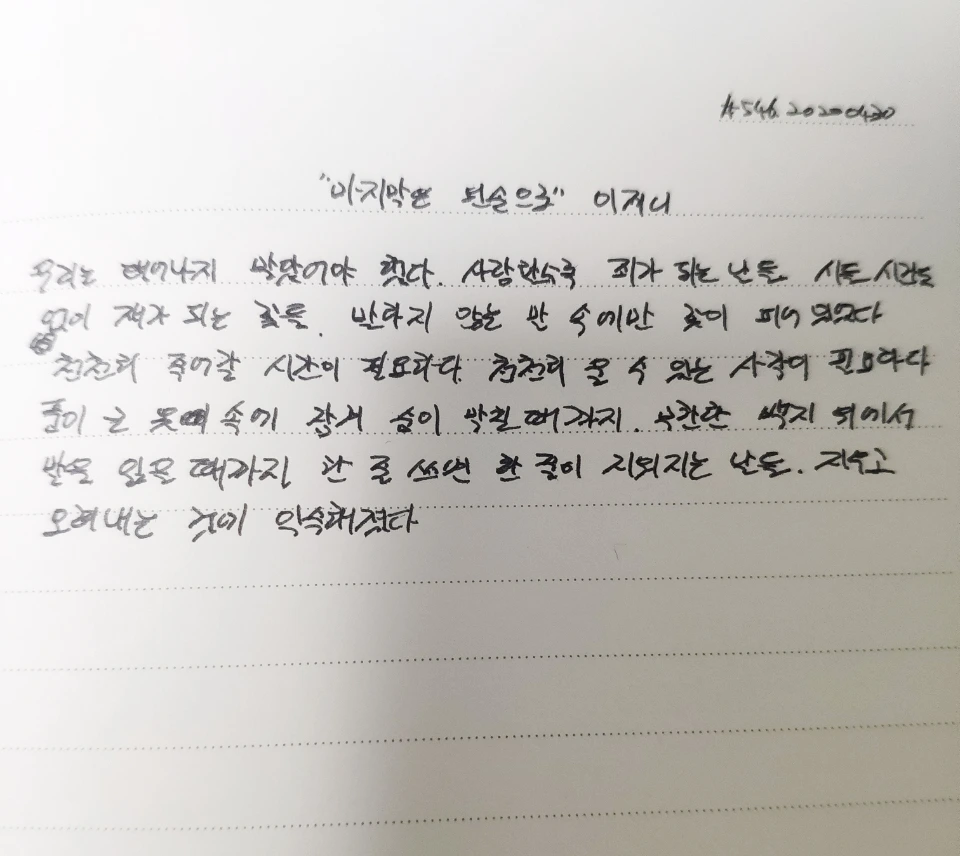 #546. 20200420
"마지막은 왼손으로" 이제니
우리는 태어나지 말았어야 했다. 사랑할수록 죄가 되는 날들. 시들 시간도
없이 재가 되는 꽃들. 말하지 않는 말 속에만 꽃이 피어 있었다
천천히 죽어갈 시간이 필요하다. 천천히 울 수 있는 사각이 필요하다
품이 큰 옷 속에 잠겨 숨이 막힐 때까지. 무한한 백지 위에서
말을 잃을 때까지. 한 줄 쓰면 한 줄이 지워지는 날들. 지우고
오려내는 것에 익숙해졌다